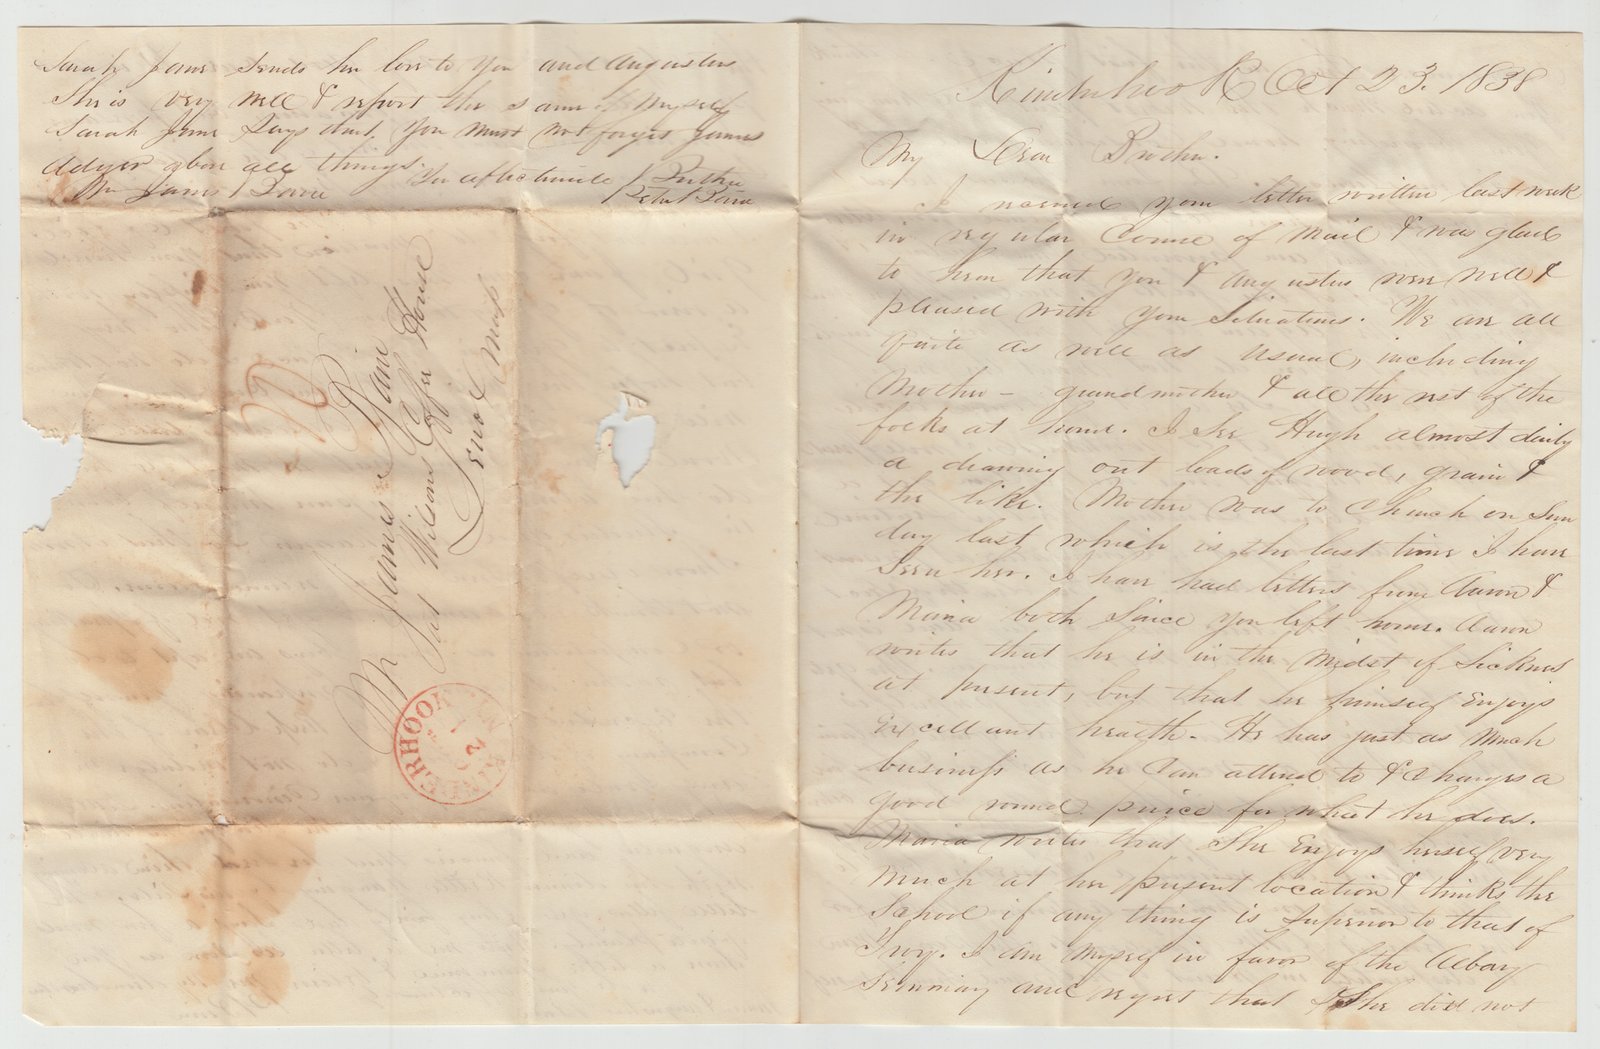 Kinderhook Oct 23. 1838
My Dear Brother.
I received your letter written last week
in regular Course of Mail & was glad
to hear that you & Augustus were well &
pleased with your Situations. We are all
quite as well as usual, including
Mother - grandmother & all the rest of the
folks at home. I See Hugh almost daily
a drawing out loads of wood, grain &
the like. Mother was to Church on Sun
day last which is the last time I have
Seen her. I have had letters from Aaron &
Maria both Since you left home. Aaron
writes that he is in the Midst of Sickness
at present, but that he himself Enjoys
Excellant health. He has just as Much
business as he Can attend to & Charges a
good round price for what he does.
Maria writes that She Enjoys herself very
Much at her present location & thinks the
School if any thing is Superior to that of
Troy. I am Myself in favor of the Albany
Seminary and regret that She did not
Sarah Jane Sends her love to You and Augustus
She is very well & report the Same of Myself
Sarah Jane Says that You Must not forget James
above all things.
Your affectionate Brother
Mr James
Peter
Mr James
Wilsons Coffee House
Lenox Mass
KINDERHOOK